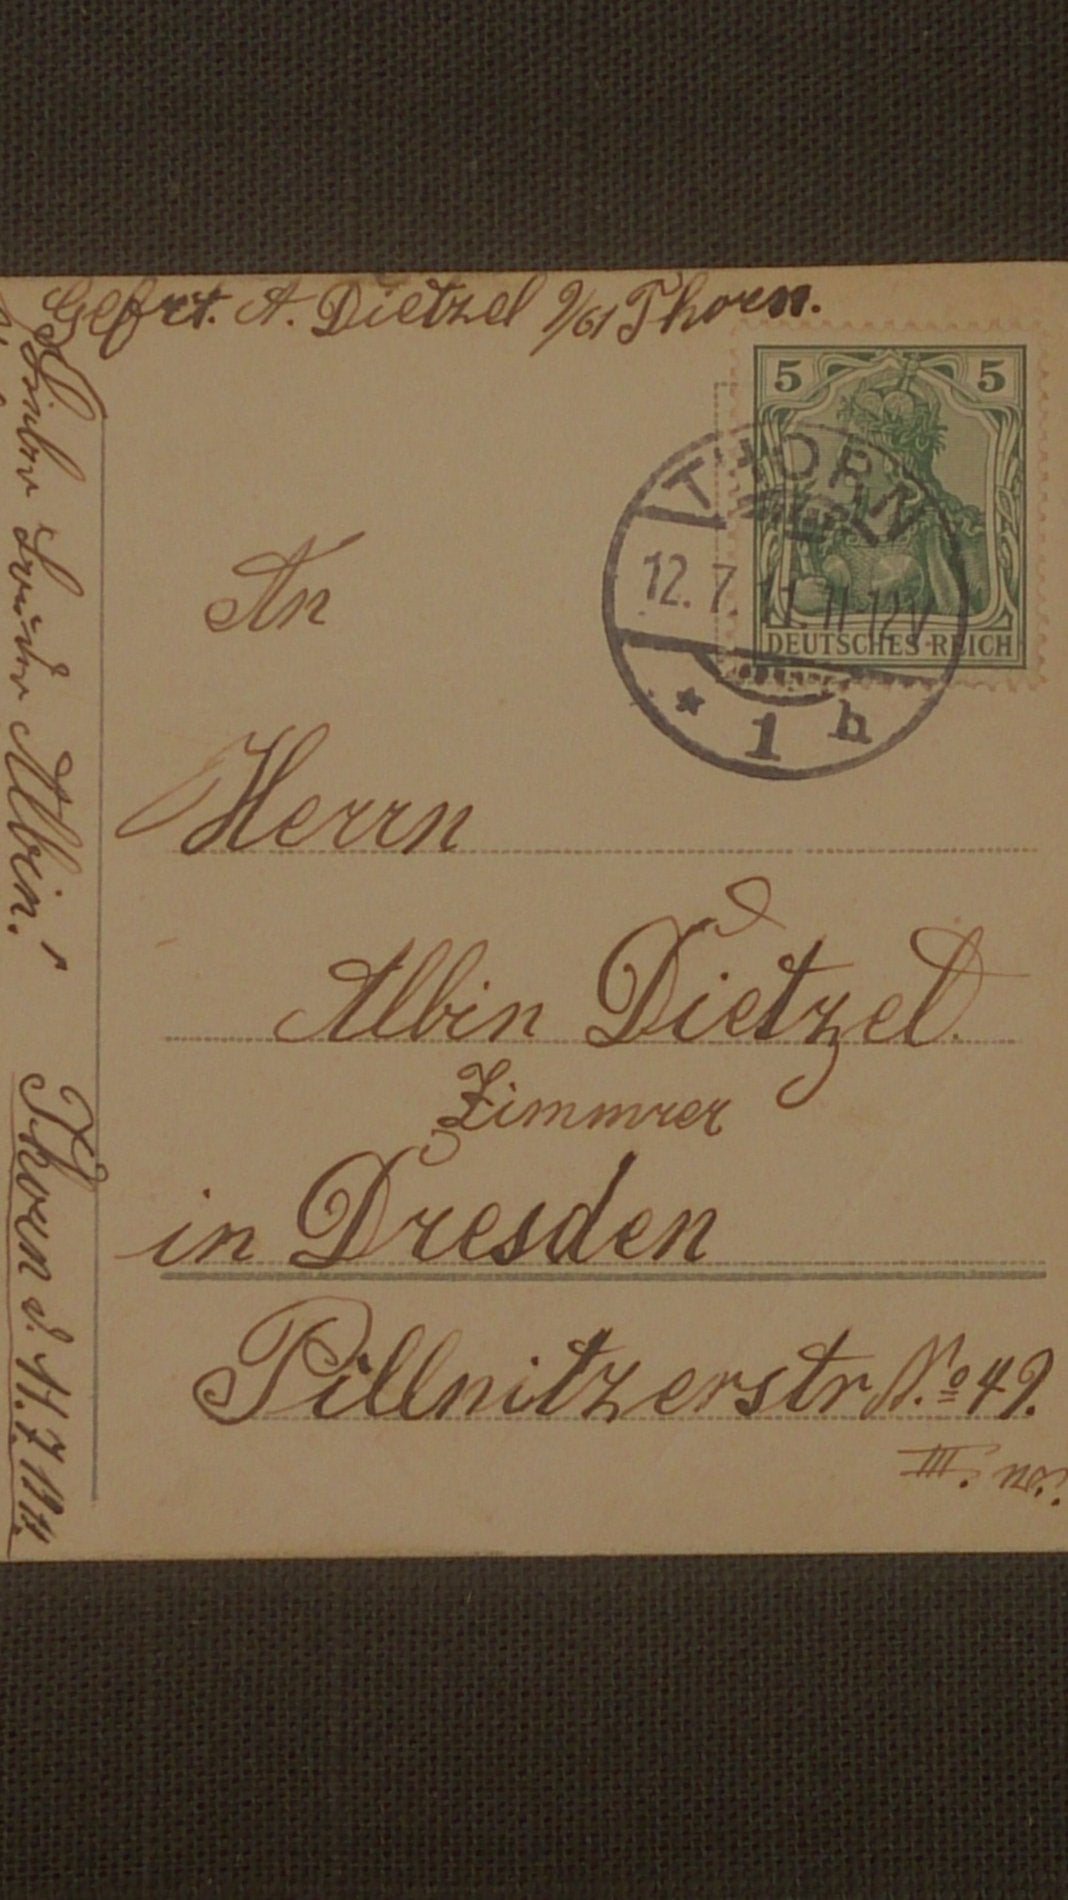 Gefrt. A. Dietzel 9/61 Thorn.
5 5
THORN
12.7.11. 11-12V
DEUTSCHES REICH
* 1 h
An
Herrn
Albin Dietzel.
Zimmrer
in Dresden
Pillnitzerstr. No 49.
III.
Lieber Bruder Albin!
Thorn d. 11.7.1911.